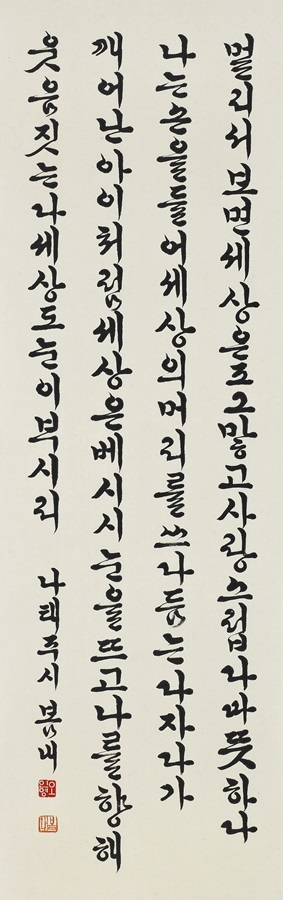 멀리서보면세상은조그맣고사랑스럽다따뜻하다
나는손을들어세상의머리를쓰다듬는다자다가
깨어난아이처럼세상은베시시눈을뜨고나를향해
웃음짓는다세상도눈이부시리 나태주시 봄내